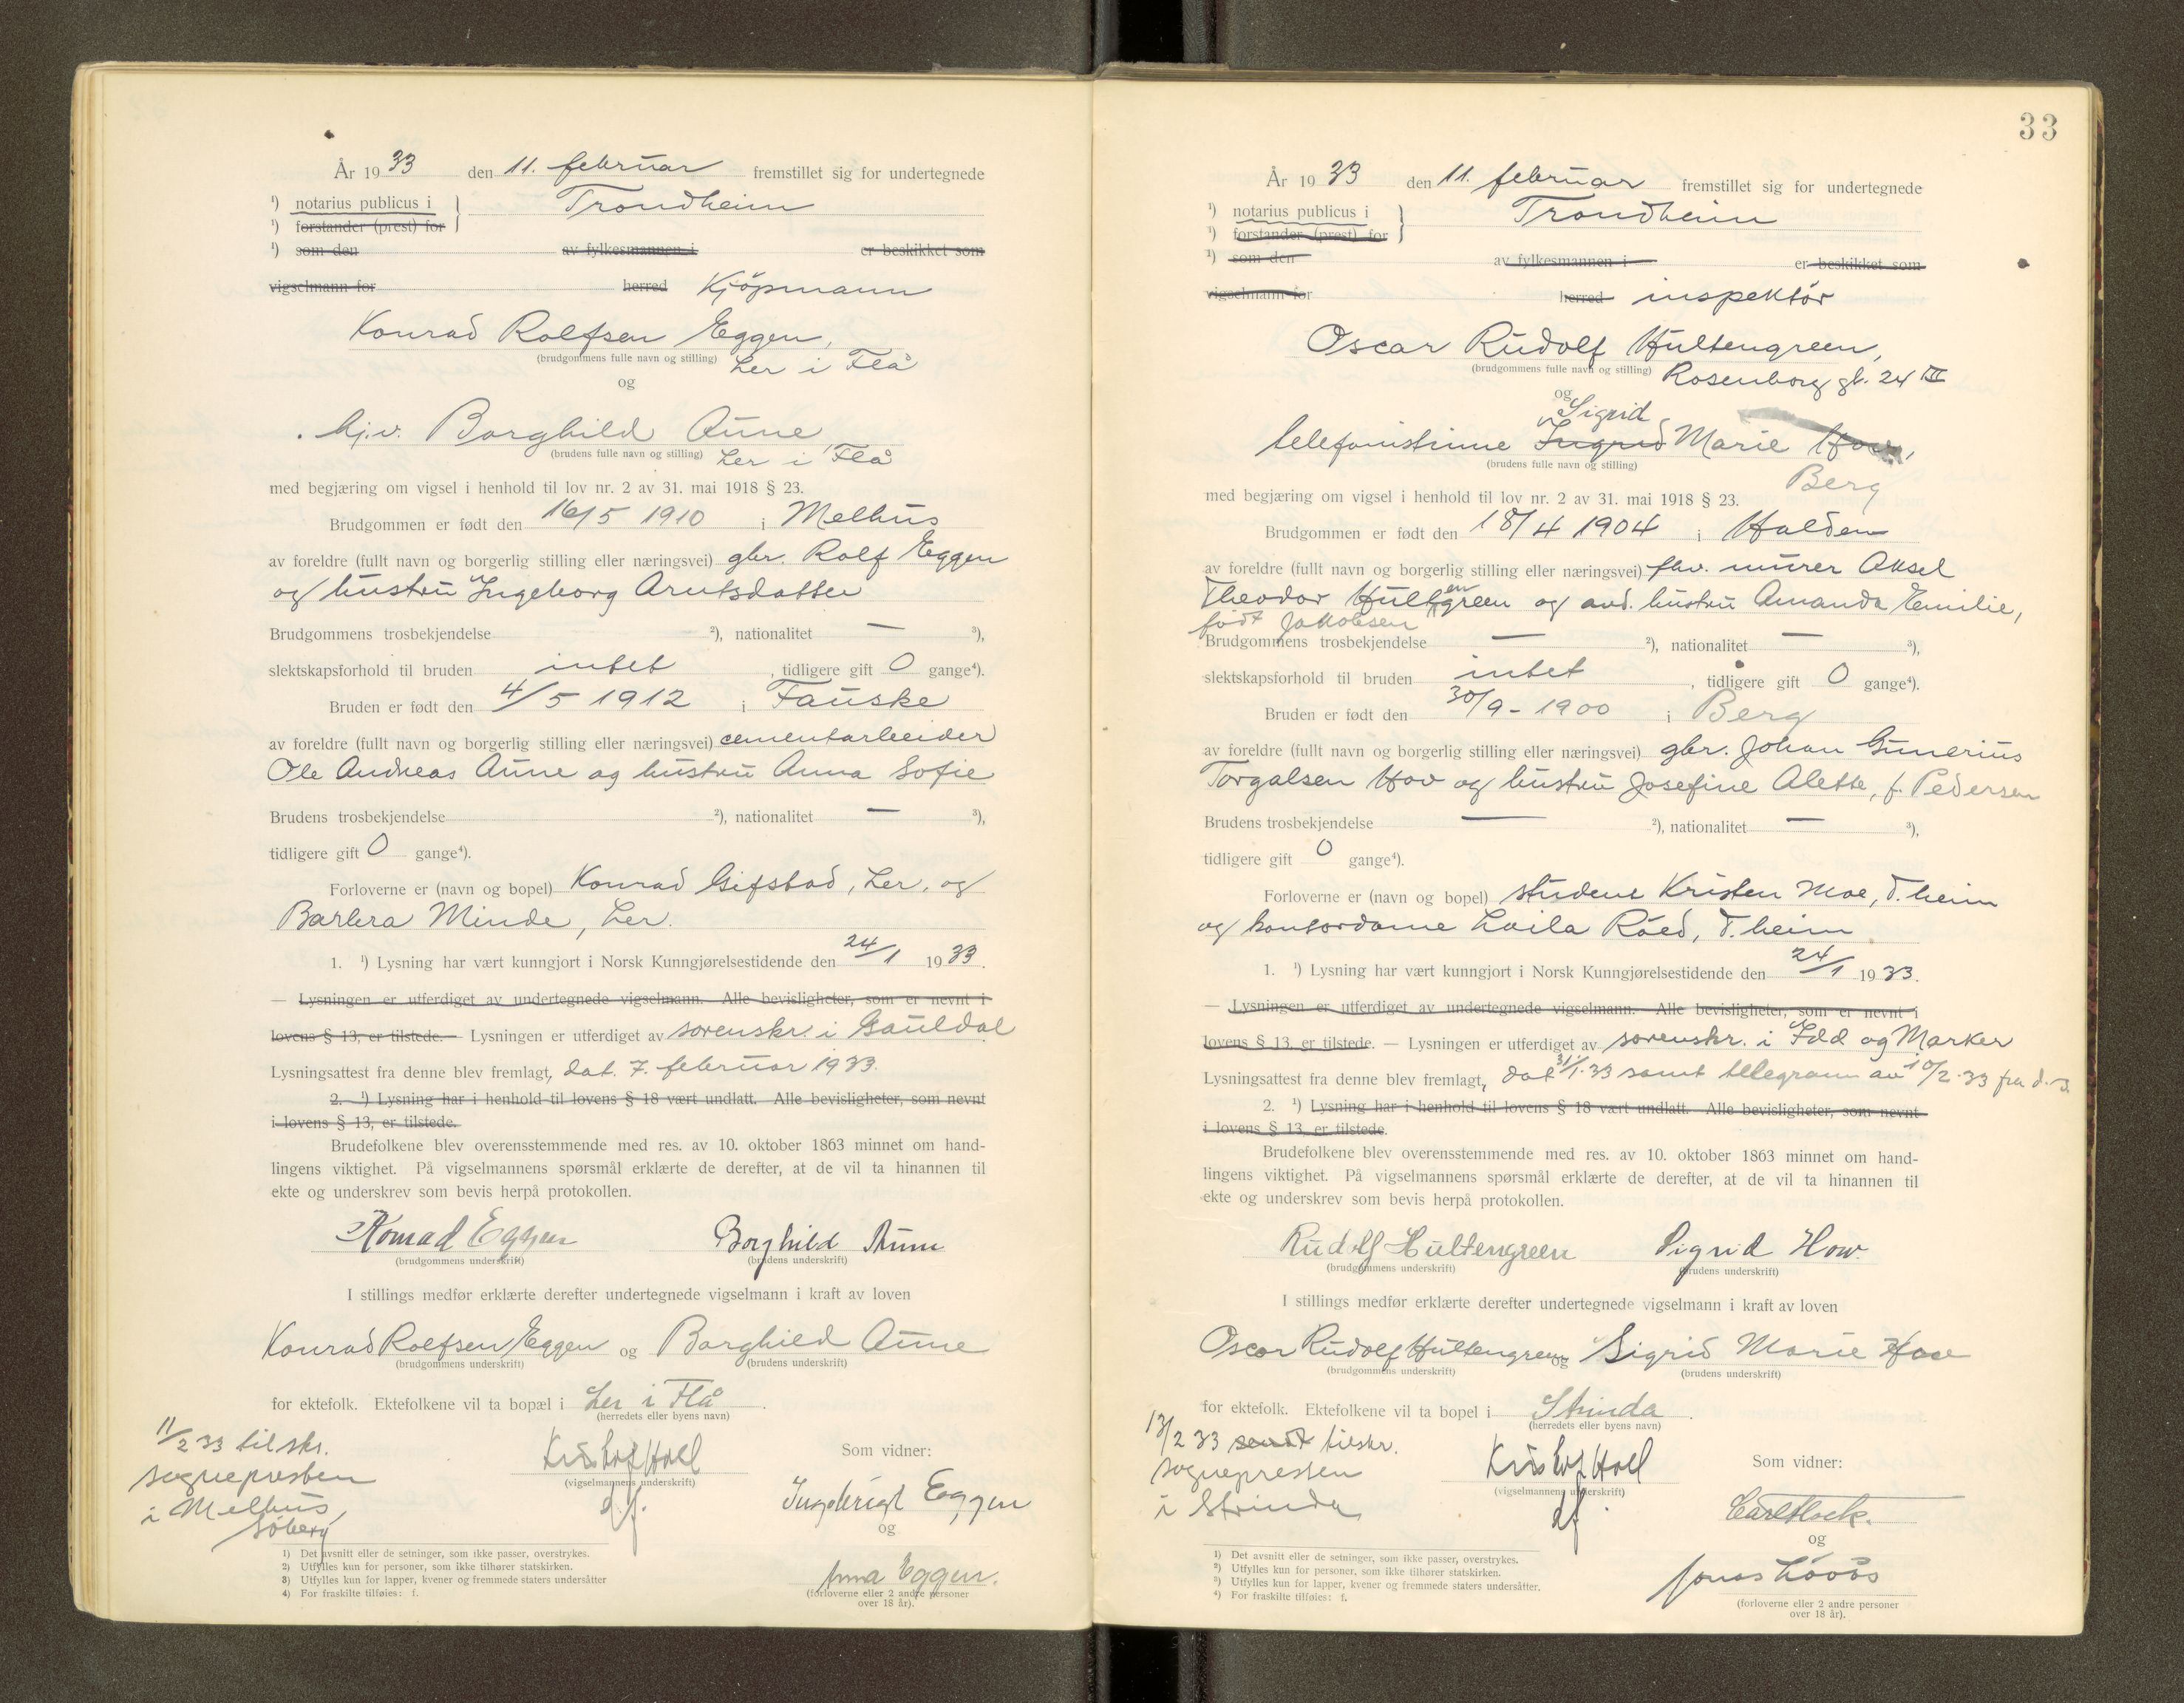 År 1933 den 11. februar fremstillet sig for undertegnede
¹) notarius publicus i } Trondheim
¹) forstander (prest) for
¹) som den av fylkesmannen i er beskikket som
vigselmann for herred Kjöpmann
Konrad Rolfsen Eggen,
(brudgommens fulle navn og stilling) Ler i Flå
og
hj.v. Borghild Aune,
(brudens fulle navn og stilling) Ler i Flå
med begjæring om vigsel i henhold til lov nr. 2 av 31. mai 1918 § 23.
Brudgommen er født den 16/5 1910 i Melhus
av foreldre (fullt navn og borgerlig stilling eller næringsvei) gbr. Rolf Eggen
og hustru Ingeborg Arntsdatter
Brudgommens trosbekjendelse ²), nationalitet — ³),
slektskapsforhold til bruden intet, tidligere gift 0 gange⁴).
Bruden er født den 4/5 1912 i Fauske
av foreldre (fullt navn og borgerlig stilling eller næringsvei) cementarbeider
Ole Andreas Aune og hustru Anna Sofie
Brudens trosbekjendelse ²), nationalitet — ³),
tidligere gift 0 gange⁴).
Forloverne er (navn og bopel) Konrad Gifstad, Ler, og
Barbra Minde, Ler.
1. ¹) Lysning har vært kunngjort i Norsk Kunngjørelsestidende den 24/1 1933.
— Lysningen er utferdiget av undertegnede vigselmann. Alle bevisligheter, som er nevnt i
lovens § 13, er tilstede. — Lysningen er utferdiget av sorenskr. i Gauldal
Lysningsattest fra denne blev fremlagt, dat. 7. februar 1933.
2. ¹) Lysning har i henhold til lovens § 18 vært undlatt. Alle bevisligheter, som nevnt
i lovens § 13, er tilstede.
Brudefolkene blev overensstemmende med res. av 10. oktober 1863 minnet om hand-
lingens viktighet. På vigselmannens spørsmål erklærte de derefter, at de vil ta hinannen til
ekte og underskrev som bevis herpå protokollen.
Konrad Eggen Borghild Aune
(brudgommens underskrift) (brudens underskrift)
I stillings medfør erklærte derefter undertegnede vigselmann i kraft av loven
Konrad Rolfsen Eggen og Borghild Aune
(brudgommens underskrift) (brudens underskrift)
for ektefolk. Ektefolkene vil ta bopæl i Ler i Flå.
(herredets eller byens navn)
11/2 33 tilskr.
sognepresten
i Melhus,
Söberg
Kristof Hall
(vigselmannens underskrift)
df.
Som vidner:
Ingebrigt Eggen
og
Anna Eggen.
(forloverne eller 2 andre personer
over 18 år).
1) Det avsnitt eller de setninger, som ikke passer, overstrykes.
2) Utfylles kun for personer, som ikke tilhører statskirken.
3) Utfylles kun for lapper, kvener og fremmede staters undersåtter
4) For fraskilte tilføies: f.
33
År 1933 den 11. februar fremstillet sig for undertegnede
¹) notarius publicus i } Trondheim
¹) forstander (prest) for
¹) som den av fylkesmannen i er beskikket som
vigselmann for herred inspektör
Oscar Rudolf Hultengreen,
(brudgommens fulle navn og stilling) Rosenborg gt. 24 III
og
Sigrid
telefonistinne Ingrid Marie How,
(brudens fulle navn og stilling)
Berg
med begjæring om vigsel i henhold til lov nr. 2 av 31. mai 1918 § 23.
Brudgommen er født den 18/4 1904 i Halden
av foreldre (fullt navn og borgerlig stilling eller næringsvei) fhv. murer Aksel
Theodor Hultengreen og avd. hustru Amanda Emilie,
født Jakobsen
Brudgommens trosbekjendelse — ²), nationalitet — ³),
slektskapsforhold til bruden intet, tidligere gift 0 gange⁴).
Bruden er født den 30/9 - 1900 i Berg
av foreldre (fullt navn og borgerlig stilling eller næringsvei) gbr. Johan Gunerius
Torgalsen Hov og hustru Josefine Alette, f. Pedersen
Brudens trosbekjendelse — ²), nationalitet — ³),
tidligere gift 0 gange⁴).
Forloverne er (navn og bopel) student Kristen Moe, T.heim
og kontordame Laila Röed, T.heim
1. ¹) Lysning har vært kunngjort i Norsk Kunngjørelsestidende den 24/1 1933.
— Lysningen er utferdiget av undertegnede vigselmann. Alle bevisligheter, som er nevnt i
lovens § 13, er tilstede. — Lysningen er utferdiget av sorenskr. i Idd og Marker
Lysningsattest fra denne blev fremlagt, dat 31/1.33 samt telegram av 10/2.33 fra d.s.
2. ¹) Lysning har i henhold til lovens § 18 vært undlatt. Alle bevisligheter, som nevnt
i lovens § 13, er tilstede.
Brudefolkene blev overensstemmende med res. av 10. oktober 1863 minnet om hand-
lingens viktighet. På vigselmannens spørsmål erklærte de derefter, at de vil ta hinannen til
ekte og underskrev som bevis herpå protokollen.
Rudolf Hultengreen Sigrid How.
(brudgommens underskrift) (brudens underskrift)
I stillings medfør erklærte derefter undertegnede vigselmann i kraft av loven
Oscar Rudolf Hultengreen og Sigrid Marie Hov
(brudgommens underskrift) (brudens underskrift)
for ektefolk. Ektefolkene vil ta bopel i Strinda.
(herredets eller byens navn)
13/2 33 sendt tilskr.
sognepresten
i Strinda
Kristof Hall
(vigselmannens underskrift)
df.
Som vidner:
og
Jonas Lööös
(forloverne eller 2 andre personer
over 18 år).
¹) Det avsnitt eller de setninger, som ikke passer, overstrykes.
²) Utfylles kun for personer, som ikke tilhører statskirken.
³) Utfylles kun for lapper, kvener og fremmede staters undersåtter.
⁴) For fraskilte tilføies: f.